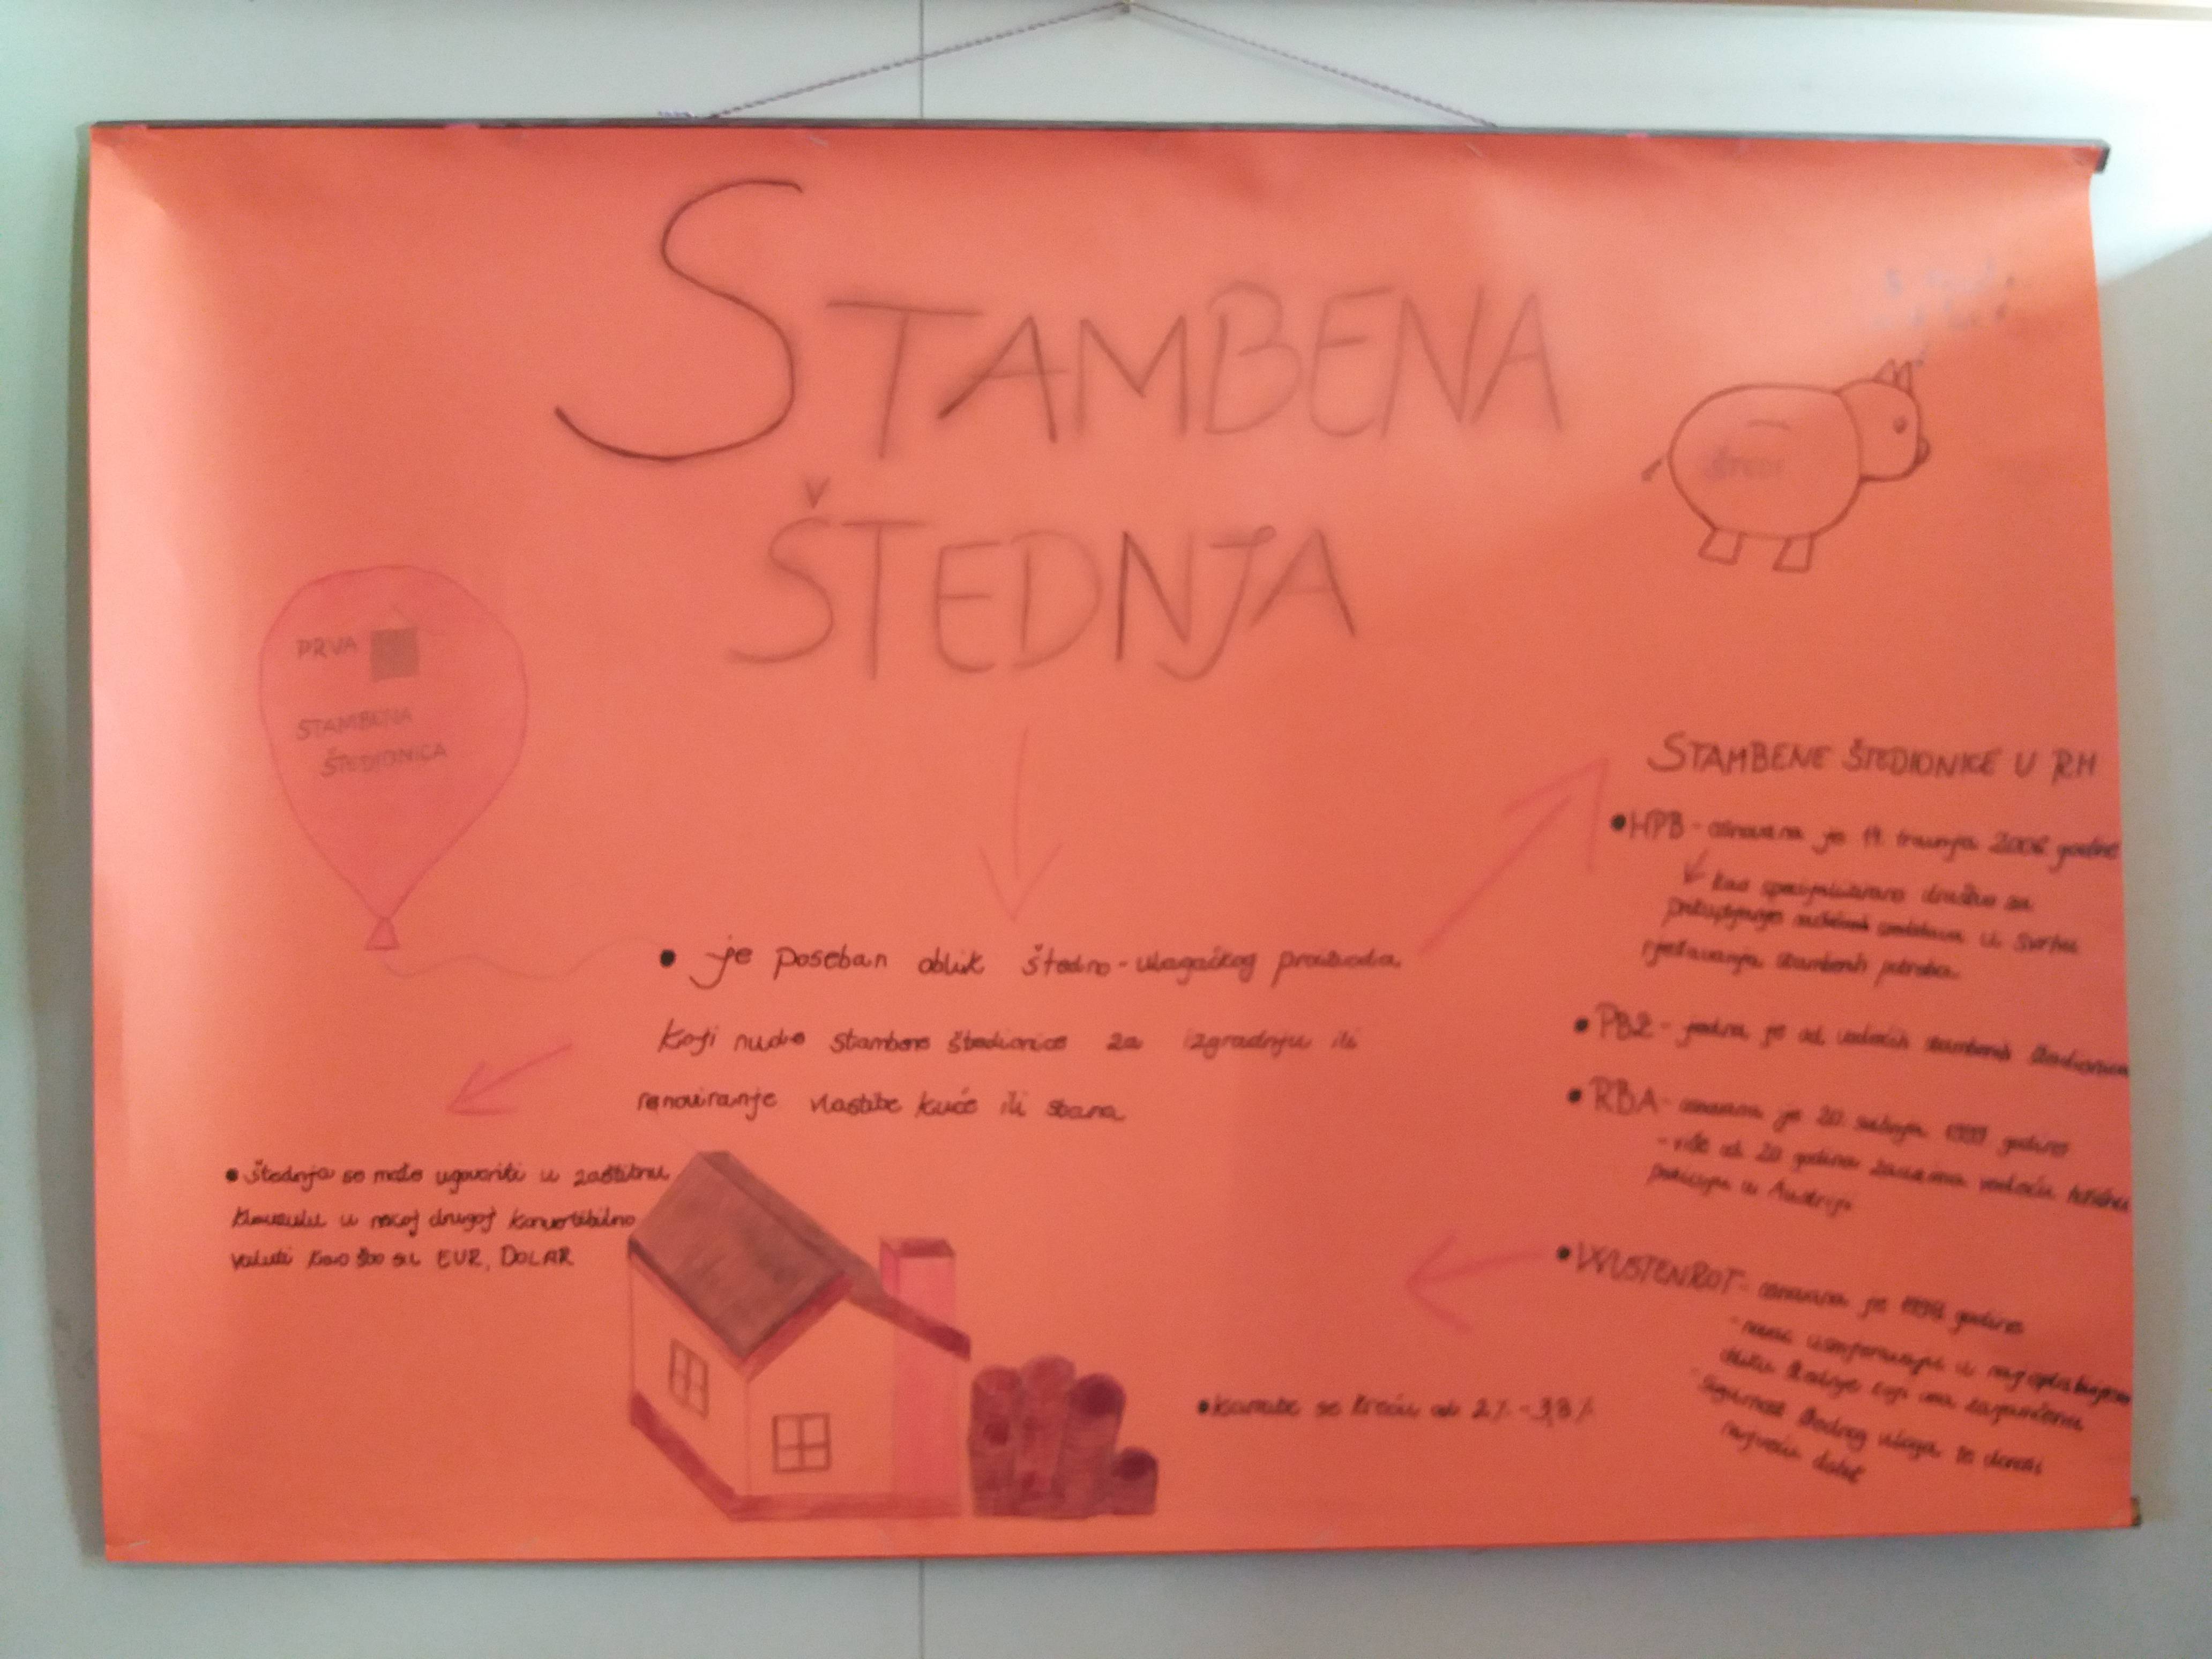 STAMBENA
ŠTEDNJA
PRVA
STAMBENA
ŠTEDIONICA
• je poseban oblik štedno-ulagačkog proizvoda
koji nude stambene štedionice za izgradnju ili
renoviranje vlastite kuće ili stana
• štednja se može ugovoriti u zaštitnu
klauzulu u nekoj drugoj konvertibilno
valuti kao što su EUR, DOLAR
• kamate se kreću od 2% - 3,8%
STAMBENE ŠTEDIONICE U RH
• HPB - osnovana je travnja 2006 godine
kao specijalizirano društvo za
prikupljanje u svrhu
rješavanja stambenih potreba
• PBZ - jedna je od vodećih stambenih štedionica
• RBA - osnovana je 20. godine
- više od 20 godina zauzima vodeću tržišnu
poziciju u Austriji
• WUSTENROT - osnovana je 1998 godine
- novac usmjeravaju u
oblik štednje koji ima zajamčenu
sigurnost štednog uloga te donosi
najveću dobit